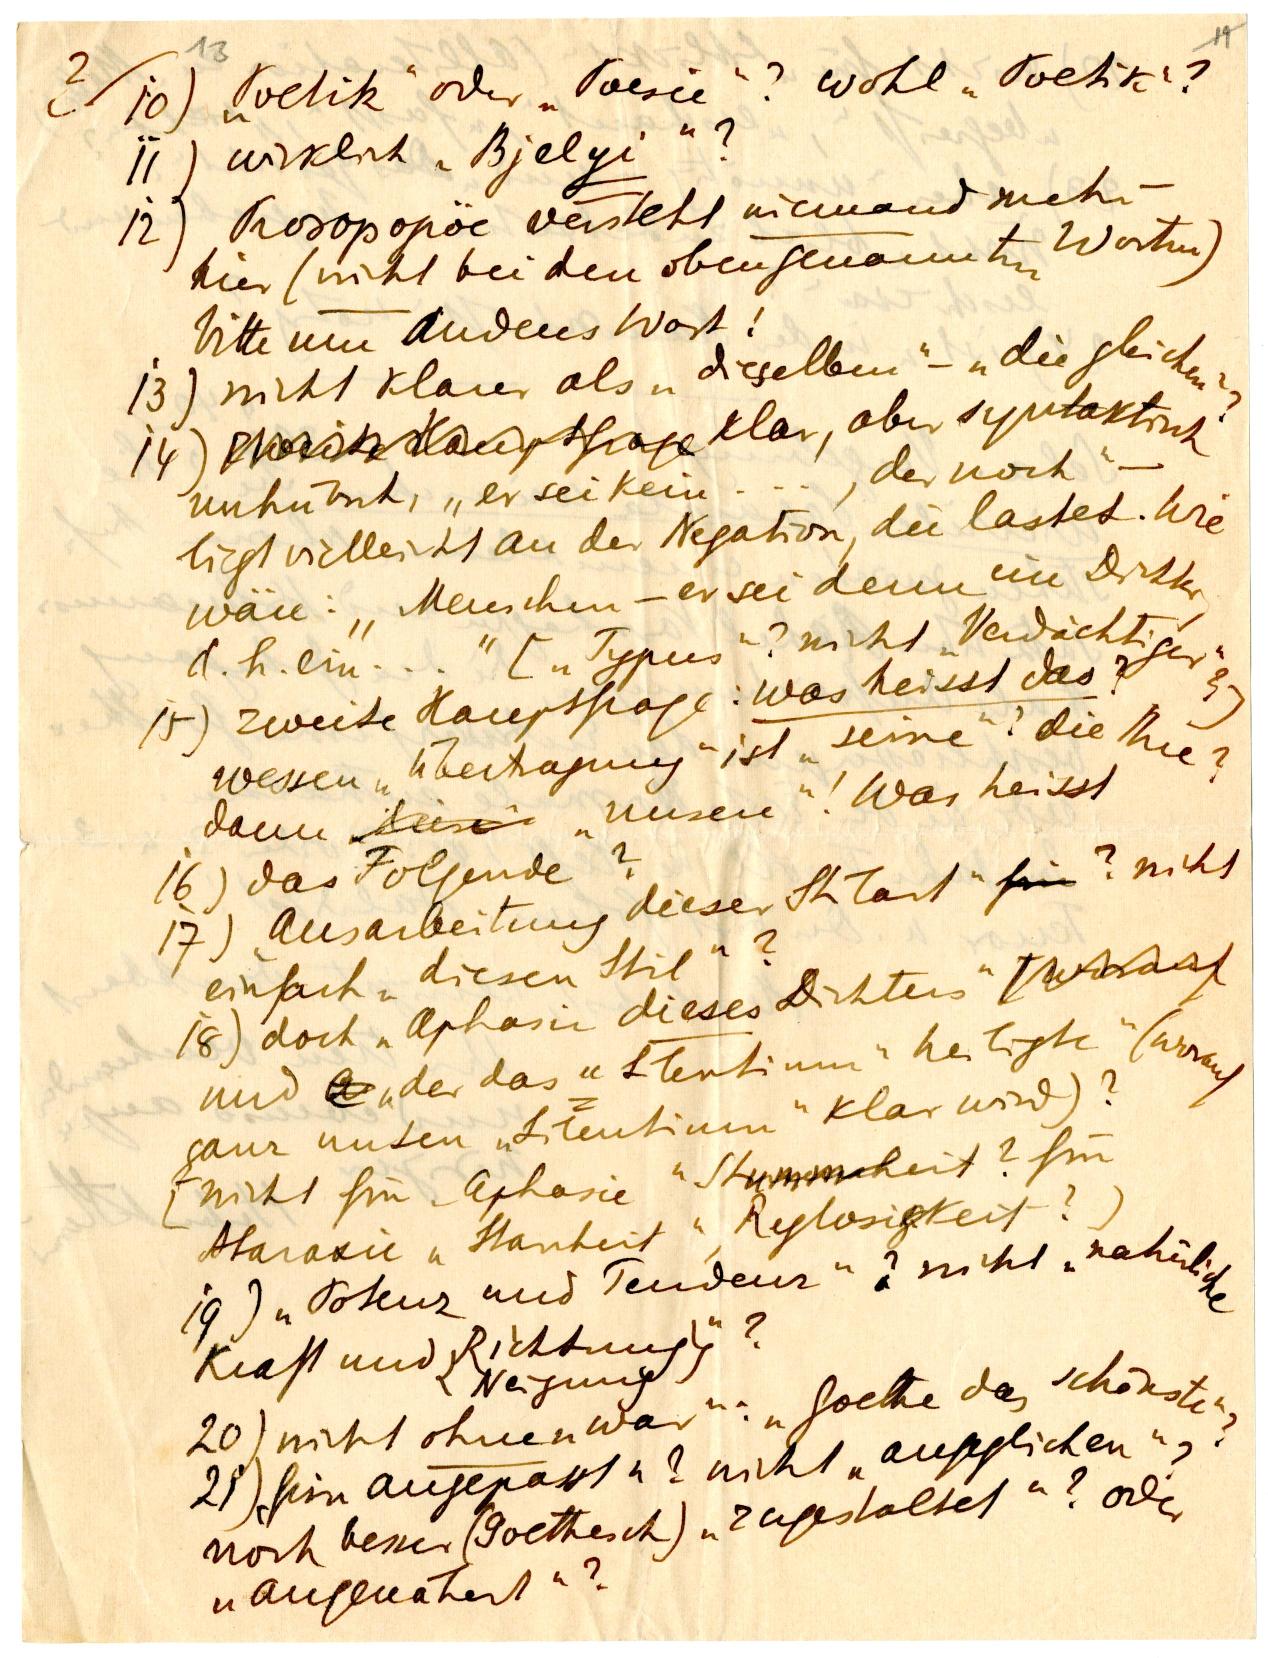 2 13 14
10) „Poetik“ oder „Poesie“? wohl „Poetik“?
11) wirklich „Bjelyi“?
12) Prosopopöe versteht niemand mehr –
hier (nicht bei den obengenannten Worten)
bitte um anderes Wort!
13) nicht klarer als „dieselben“ – „die gleichen“?
14) zweite Hauptfrage klar, aber syntaktisch
unhübsch, „er sei kein . . . , der noch“ –
liegt vielleicht an der Negation, die lastet. Wie
wäre: „Menschen – er sei denn ein Dichter,
d. h. ein . . . “ [„Typus“? nicht „Verdächtiger“?]
15) zweite Hauptfrage: was heisst das?
wessen „Übertragung“ ist „seine“? die Ihre?
dann „unsere“! Was heisst
16) das Folgende?
17) „Ausarbeitung dieser Stilart“ ? nicht
einfach „diesen Stil“?
18) doch „Aphasie dieses Dichters“
und „der das „Silentium“ heiligte“ (worauf
ganz unten „Silentium“ klar wird)?
[nicht für „Aphasie“ Stummheit? für
Ataraxie „Starrheit“, Reglosigkeit?)
19) „Potenz und Tendenz“? nicht „natürliche
Kraft und Richtung“?
Neigung
20) nicht ohne „war“: „Goethe das schönste“?
21) für „angepasst“? nicht „angeglichen“?
noch besser (Goethesch) „zugestaltet“? oder
„angenähert“?